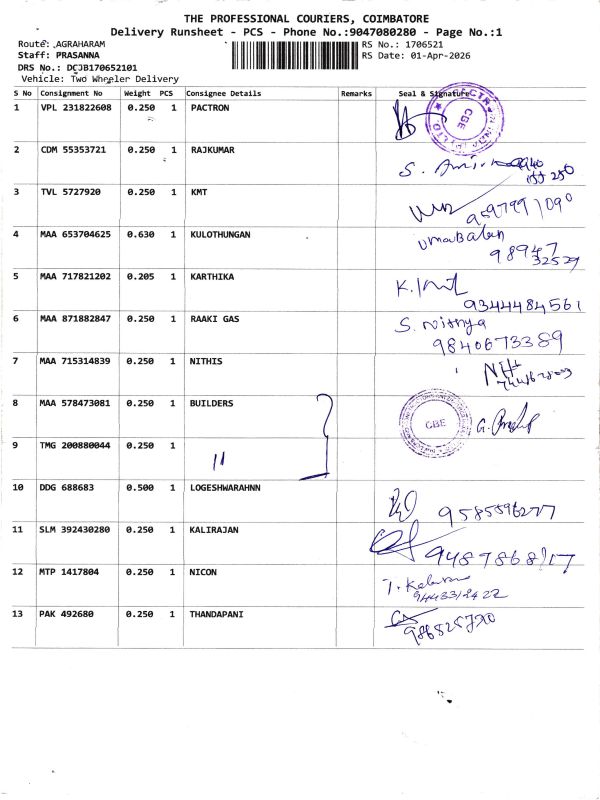 THE PROFESSIONAL COURIERS, COIMBATORE
Delivery Runsheet - PCS - Phone No.:9047080280 - Page No.:1
Route: AGRAHARAM RS No.: 1706521
Staff: PRASANNA RS Date: 01-Apr-2026
DRS No.: DCJB170652101
Vehicle: Two Wheeler Delivery
S No Consignment No Weight PCS Consignee Details Remarks Seal & Signature
1 VPL 231822608 0.250 1 PACTRON
CBE
2 CDM 55353721 0.250 1 RAJKUMAR
3 TVL 5727920 0.250 1 KMT
4 MAA 653704625 0.630 1 KULOTHUNGAN Umabalan
98947
32529
5 MAA 717821202 0.205 1 KARTHIKA
9344484561
6 MAA 871882847 0.250 1 RAAKI GAS S. Nithya
9840673389
7 MAA 715314839 0.250 1 NITHIS
8 MAA 578473081 0.250 1 BUILDERS
CBE
9 TMG 200880044 0.250 1 "
10 DDG 688683 0.500 1 LOGESHWARAHNN
9585596277
11 SLM 392430280 0.250 1 KALIRAJAN
12 MTP 1417804 0.250 1 NICON
13 PAK 492680 0.250 1 THANDAPANI